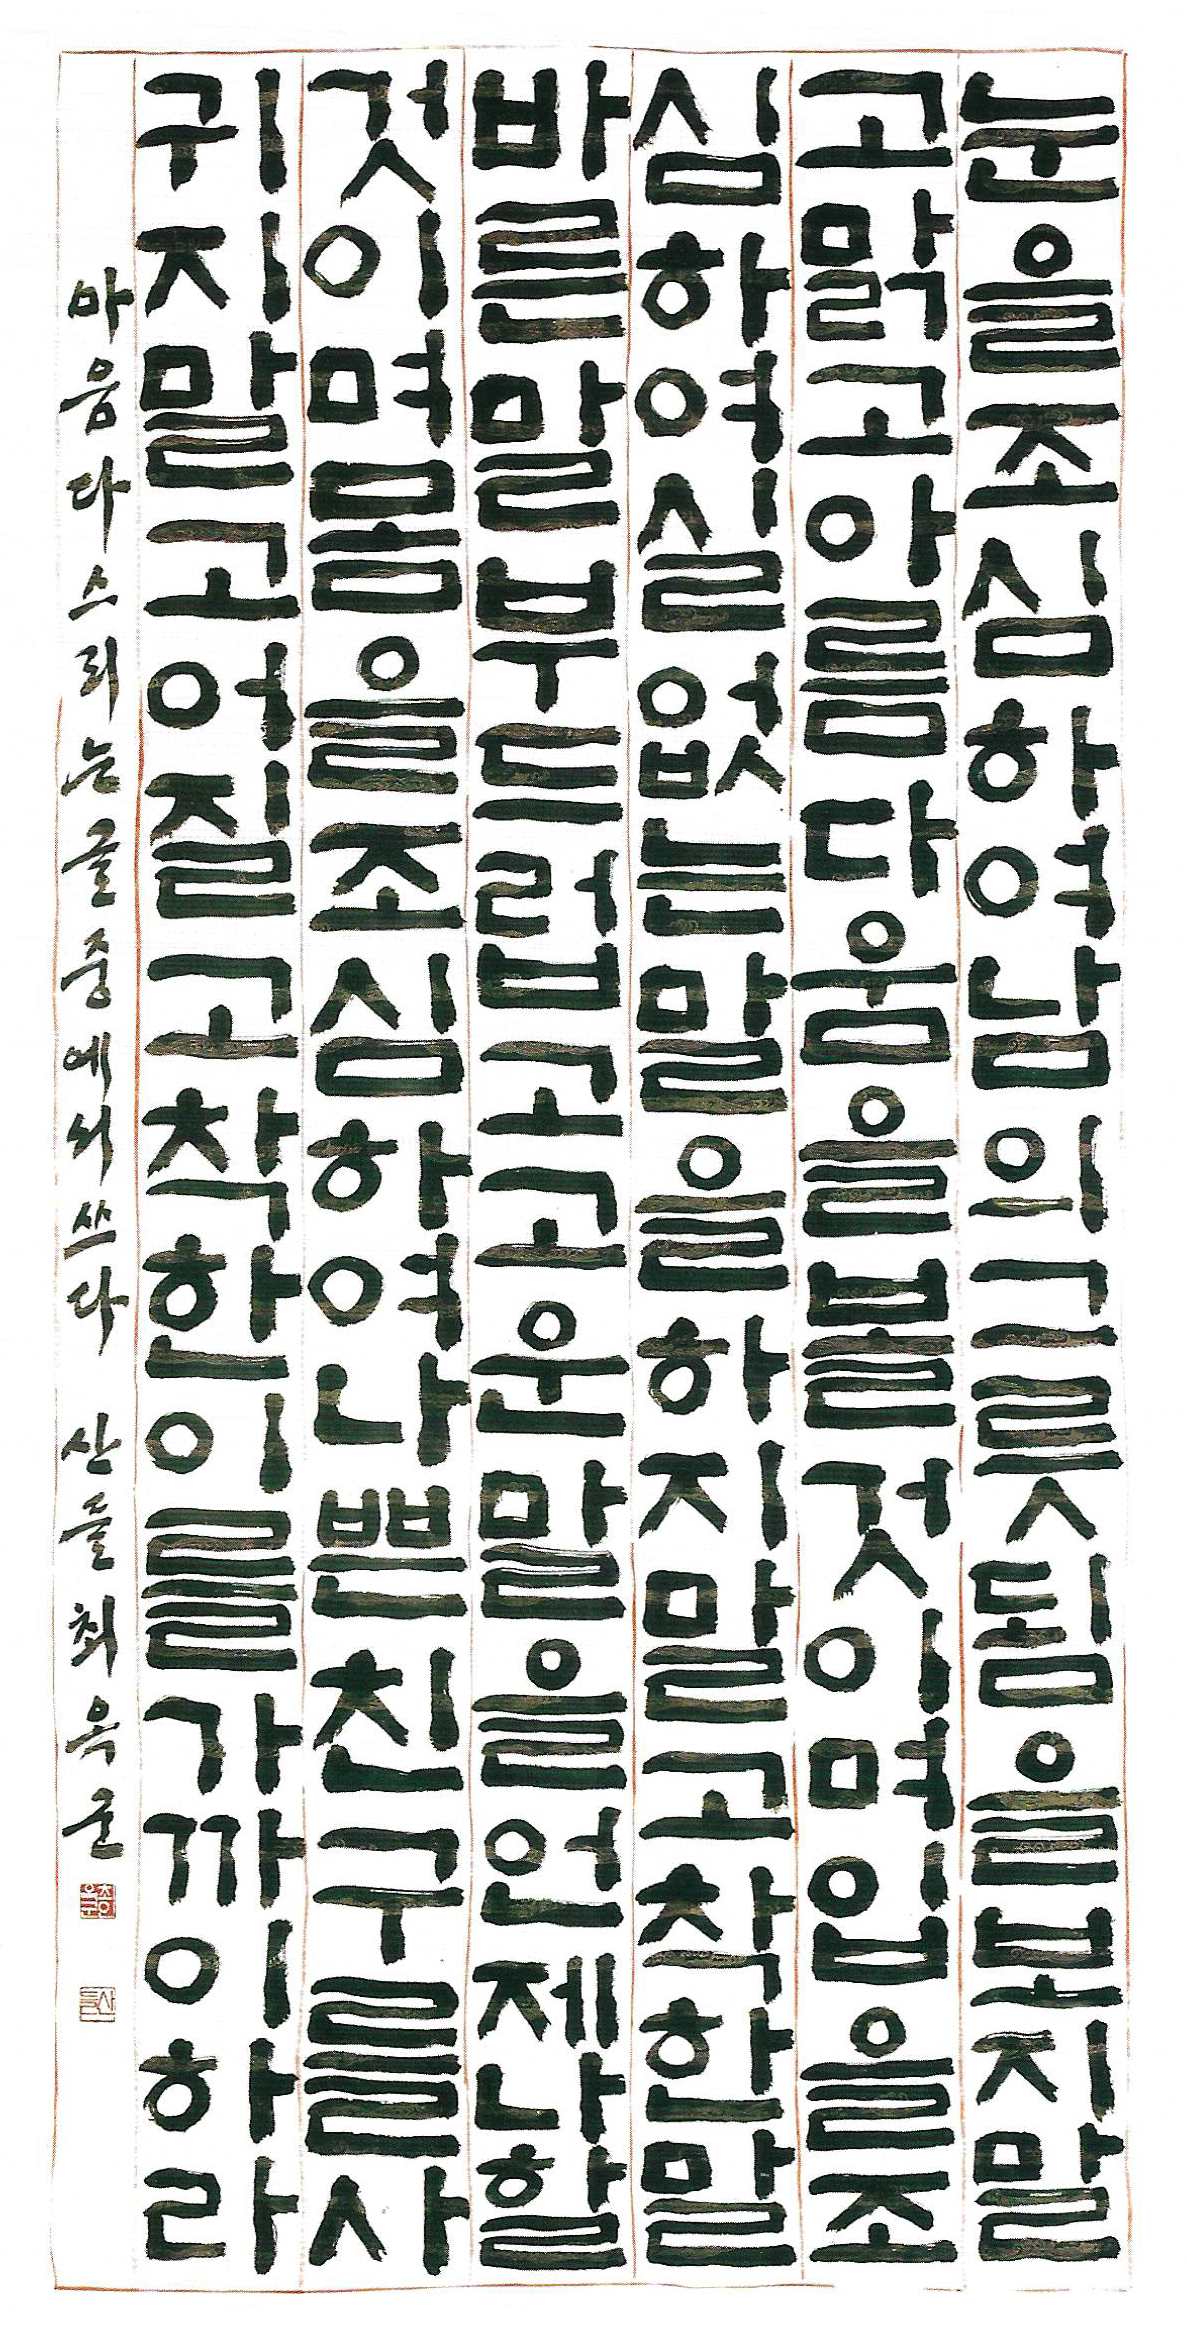 눈을조심하여남의그릇됨을보지말
고맑고아름다움을볼것이며입을조
심하여실없는말을하지말고착한말
바른말부드럽고고운말을언제나할
것이며몸을조심하여나쁜친구를사
귀지말고어질고착한이를가까이하라
마음다스리는글중에서쓰다 산들최옥군